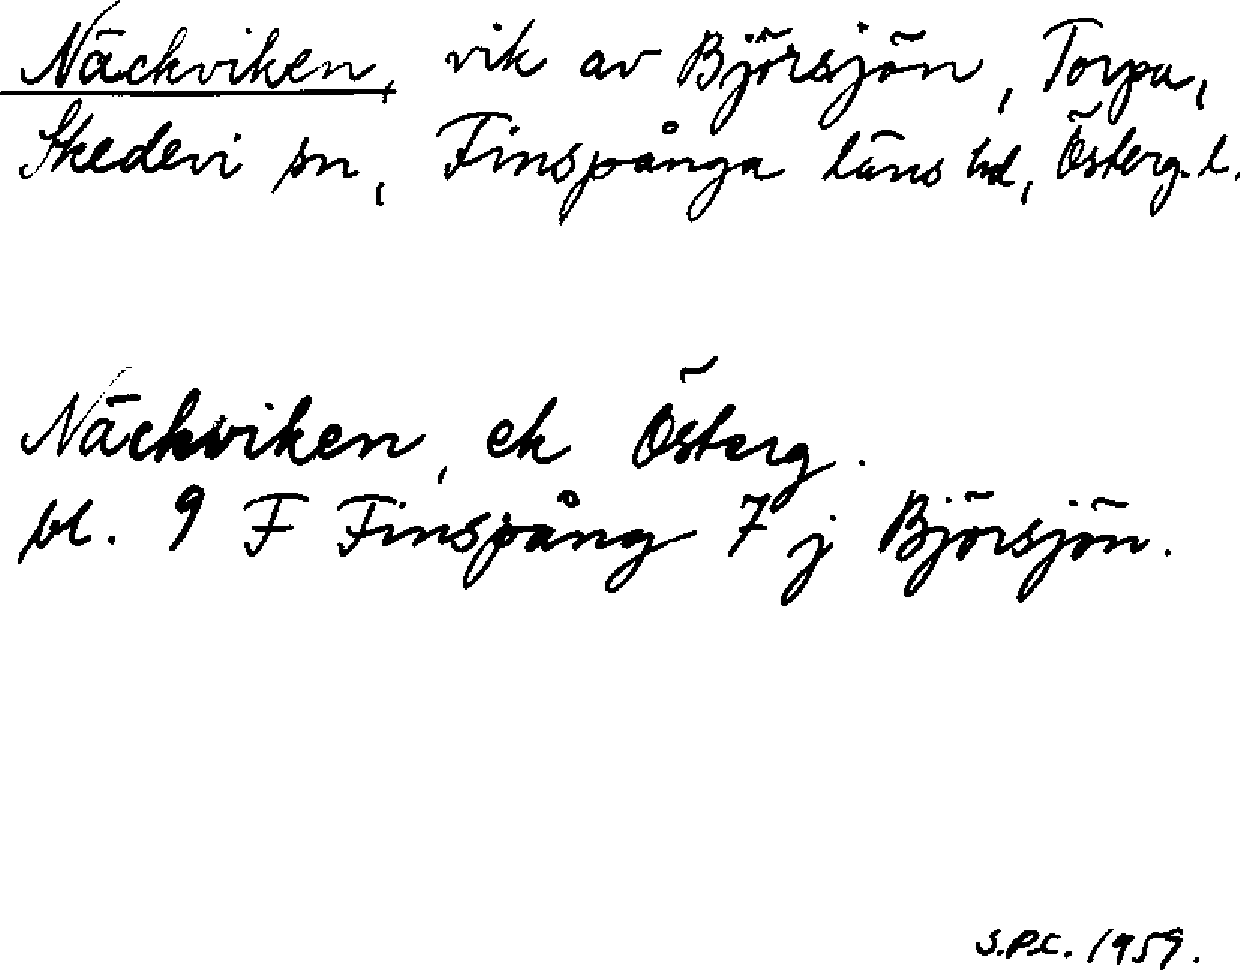 Näckviken, vik av Björsjön, Torpa,
Skedevi sn, Finspånga läns hd, Österg. l.
Näckviken, ek Österg.
bl. 9 F Finspång 7 j Björsjön.
S.P.C. 1959.